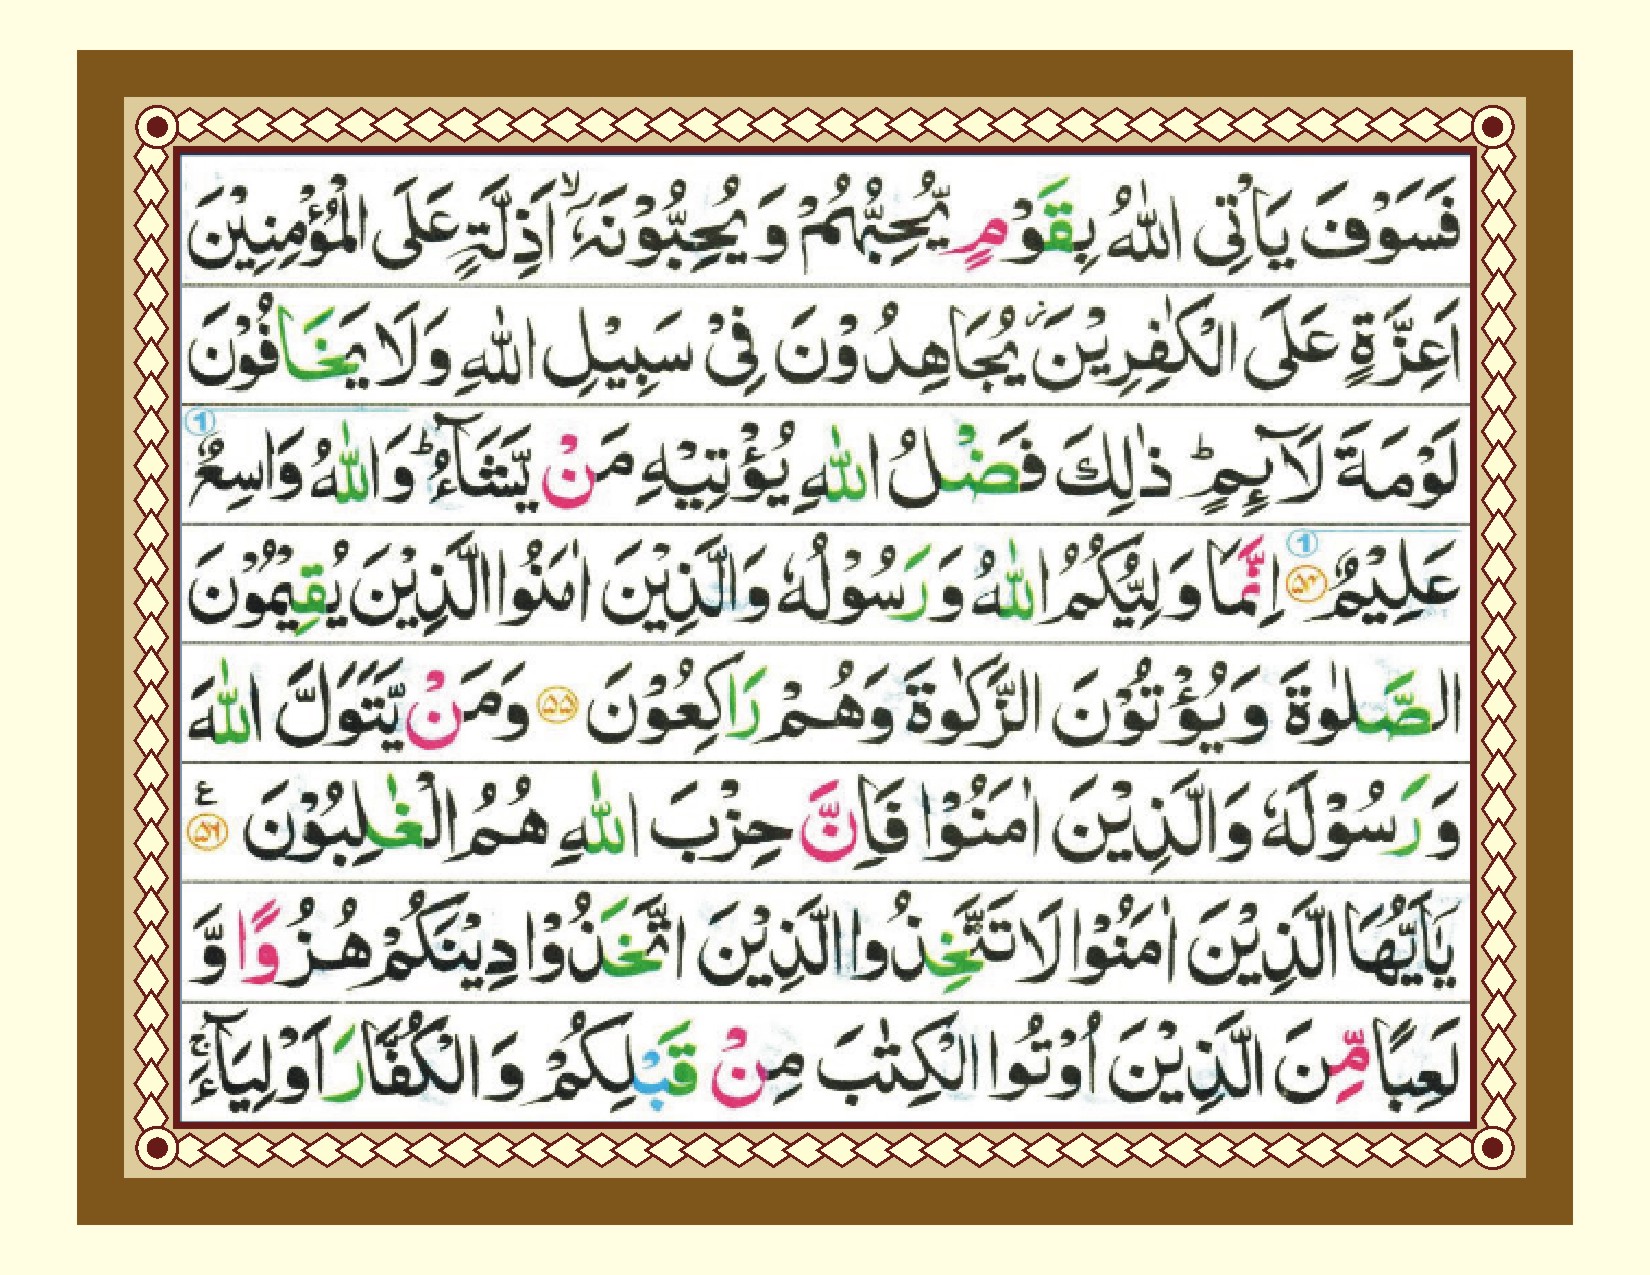 فَسَوْفَ يَاْتِي اللّٰهُ بِقَوْمٍ يُّحِبُّهُمْ وَ يُحِبُّوْنَهٗۤ ۙ اَذِلَّةٍ عَلَى الْمُؤْمِنِيْنَ
اَعِزَّةٍ عَلَى الْكٰفِرِيْنَ ؗ يُجَاهِدُوْنَ فِیْ سَبِيْلِ اللّٰهِ وَلَا يَخَافُوْنَ
لَوْمَةَ لَآئِمٍ ؕ ذٰلِكَ فَضْلُ اللّٰهِ يُؤْتِيْهِ مَنْ يَّشَآءُ ؕ وَاللّٰهُ وَاسِعٌ ①
عَلِيْمٌ ۵۴ ① اِنَّمَا وَلِيُّكُمُ اللّٰهُ وَ رَسُوْلُهٗ وَالَّذِيْنَ اٰمَنُوا الَّذِيْنَ يُقِيْمُوْنَ
الصَّلٰوةَ وَ يُؤْتُوْنَ الزَّكٰوةَ وَهُمْ رَاكِعُوْنَ ۵۵ وَمَنْ يَّتَوَلَّ اللّٰهَ
وَ رَسُوْلَهٗ وَالَّذِيْنَ اٰمَنُوْا فَاِنَّ حِزْبَ اللّٰهِ هُمُ الْغٰلِبُوْنَ ۵۶ ع
يٰۤاَيُّهَا الَّذِيْنَ اٰمَنُوْا لَا تَتَّخِذُوا الَّذِيْنَ اتَّخَذُوْا دِيْنَكُمْ هُزُوًا وَّ
لَعِبًا مِّنَ الَّذِيْنَ اُوْتُوا الْكِتٰبَ مِنْ قَبْلِكُمْ وَ الْكُفَّارَ اَوْلِيَآءَ ۚ